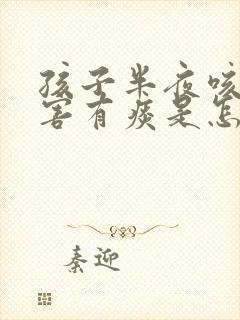 孩子半夜咳
害有痰是怎
秦迎